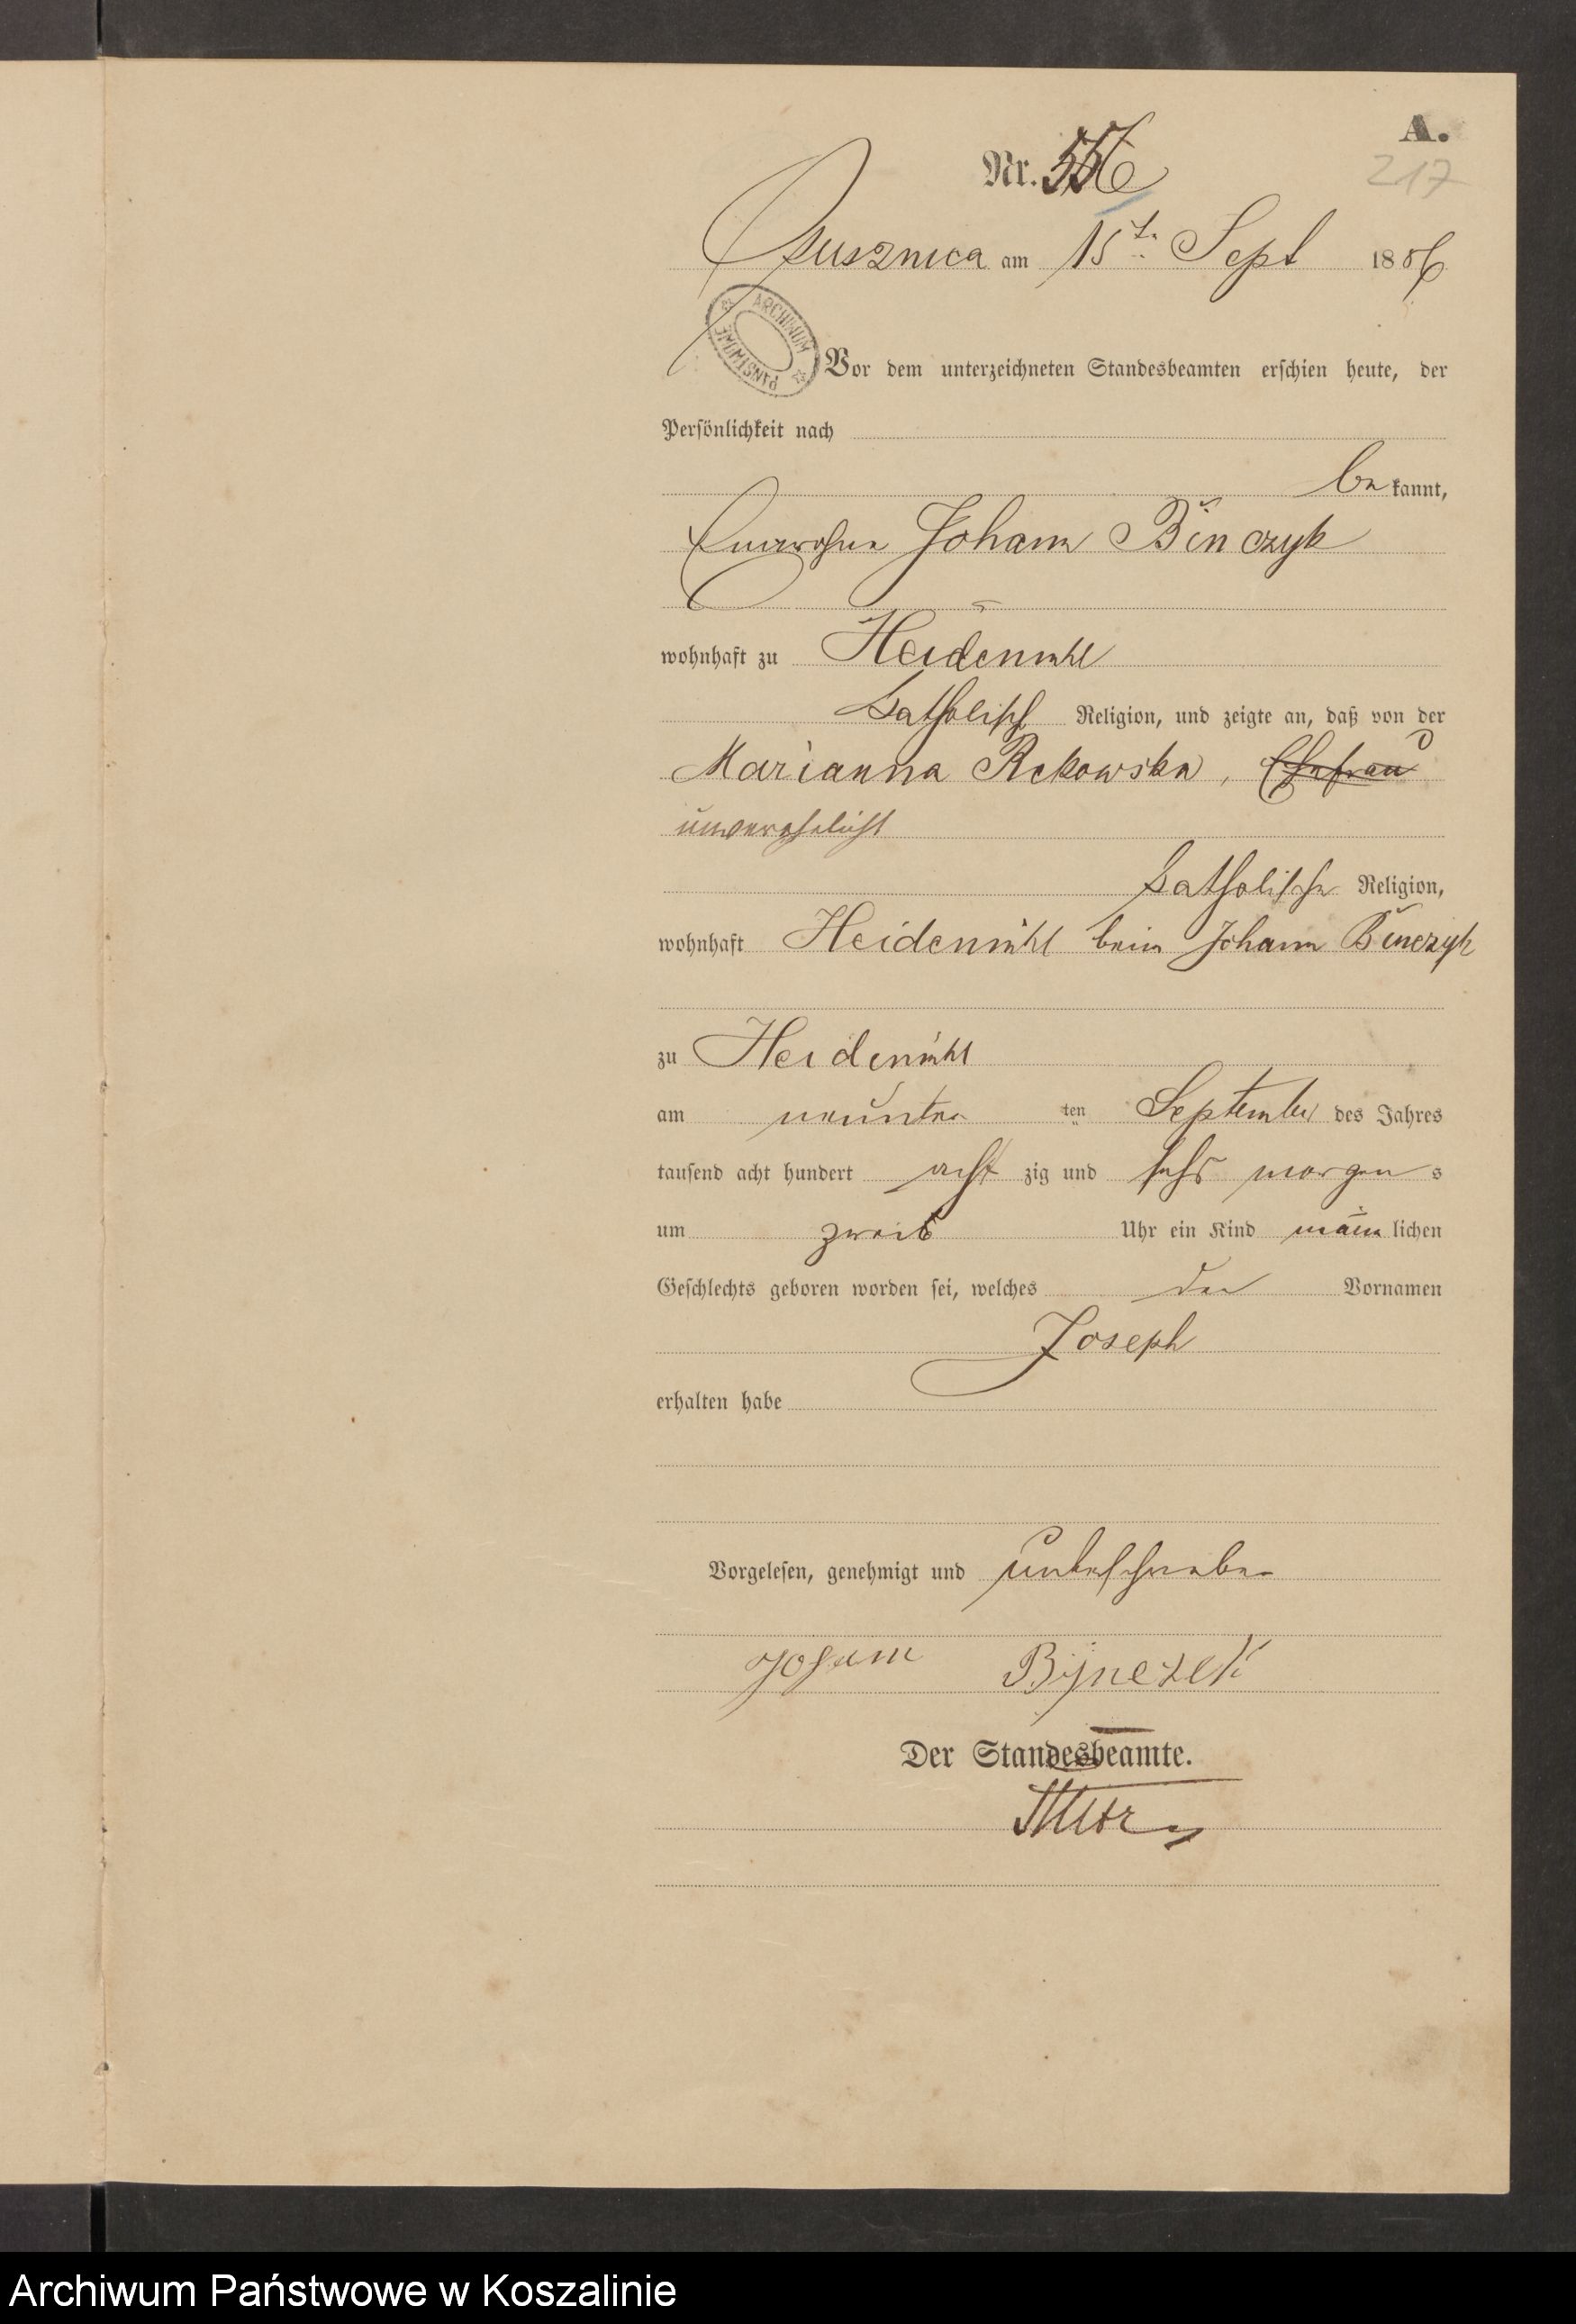 A.
Nr. 556
217
am 15t. Sept 1886
ARCHIWUM PAŃSTWOWE
Vor dem unterzeichneten Standesbeamten erschien heute, der
Persönlichkeit nach
be kannt,
Einwohner Johann Binczyk
wohnhaft zu Heidemühl
katholisch Religion, und zeigte an, daß von der
Marianna Rekowska, Ehefrau
unverehelicht
katholischer Religion,
wohnhaft Heidemühl beim Johann Binczyk
zu Heidemühl
am neunten ten September des Jahres
tausend acht hundert acht zig und sechs morgen s
um zwei Uhr ein Kind männ lichen
Geschlechts geboren worden sei, welches den Vornamen
Joseph
erhalten habe
Vorgelesen, genehmigt und unterschrieben
Johann Bynczek
Der Standesbeamte.